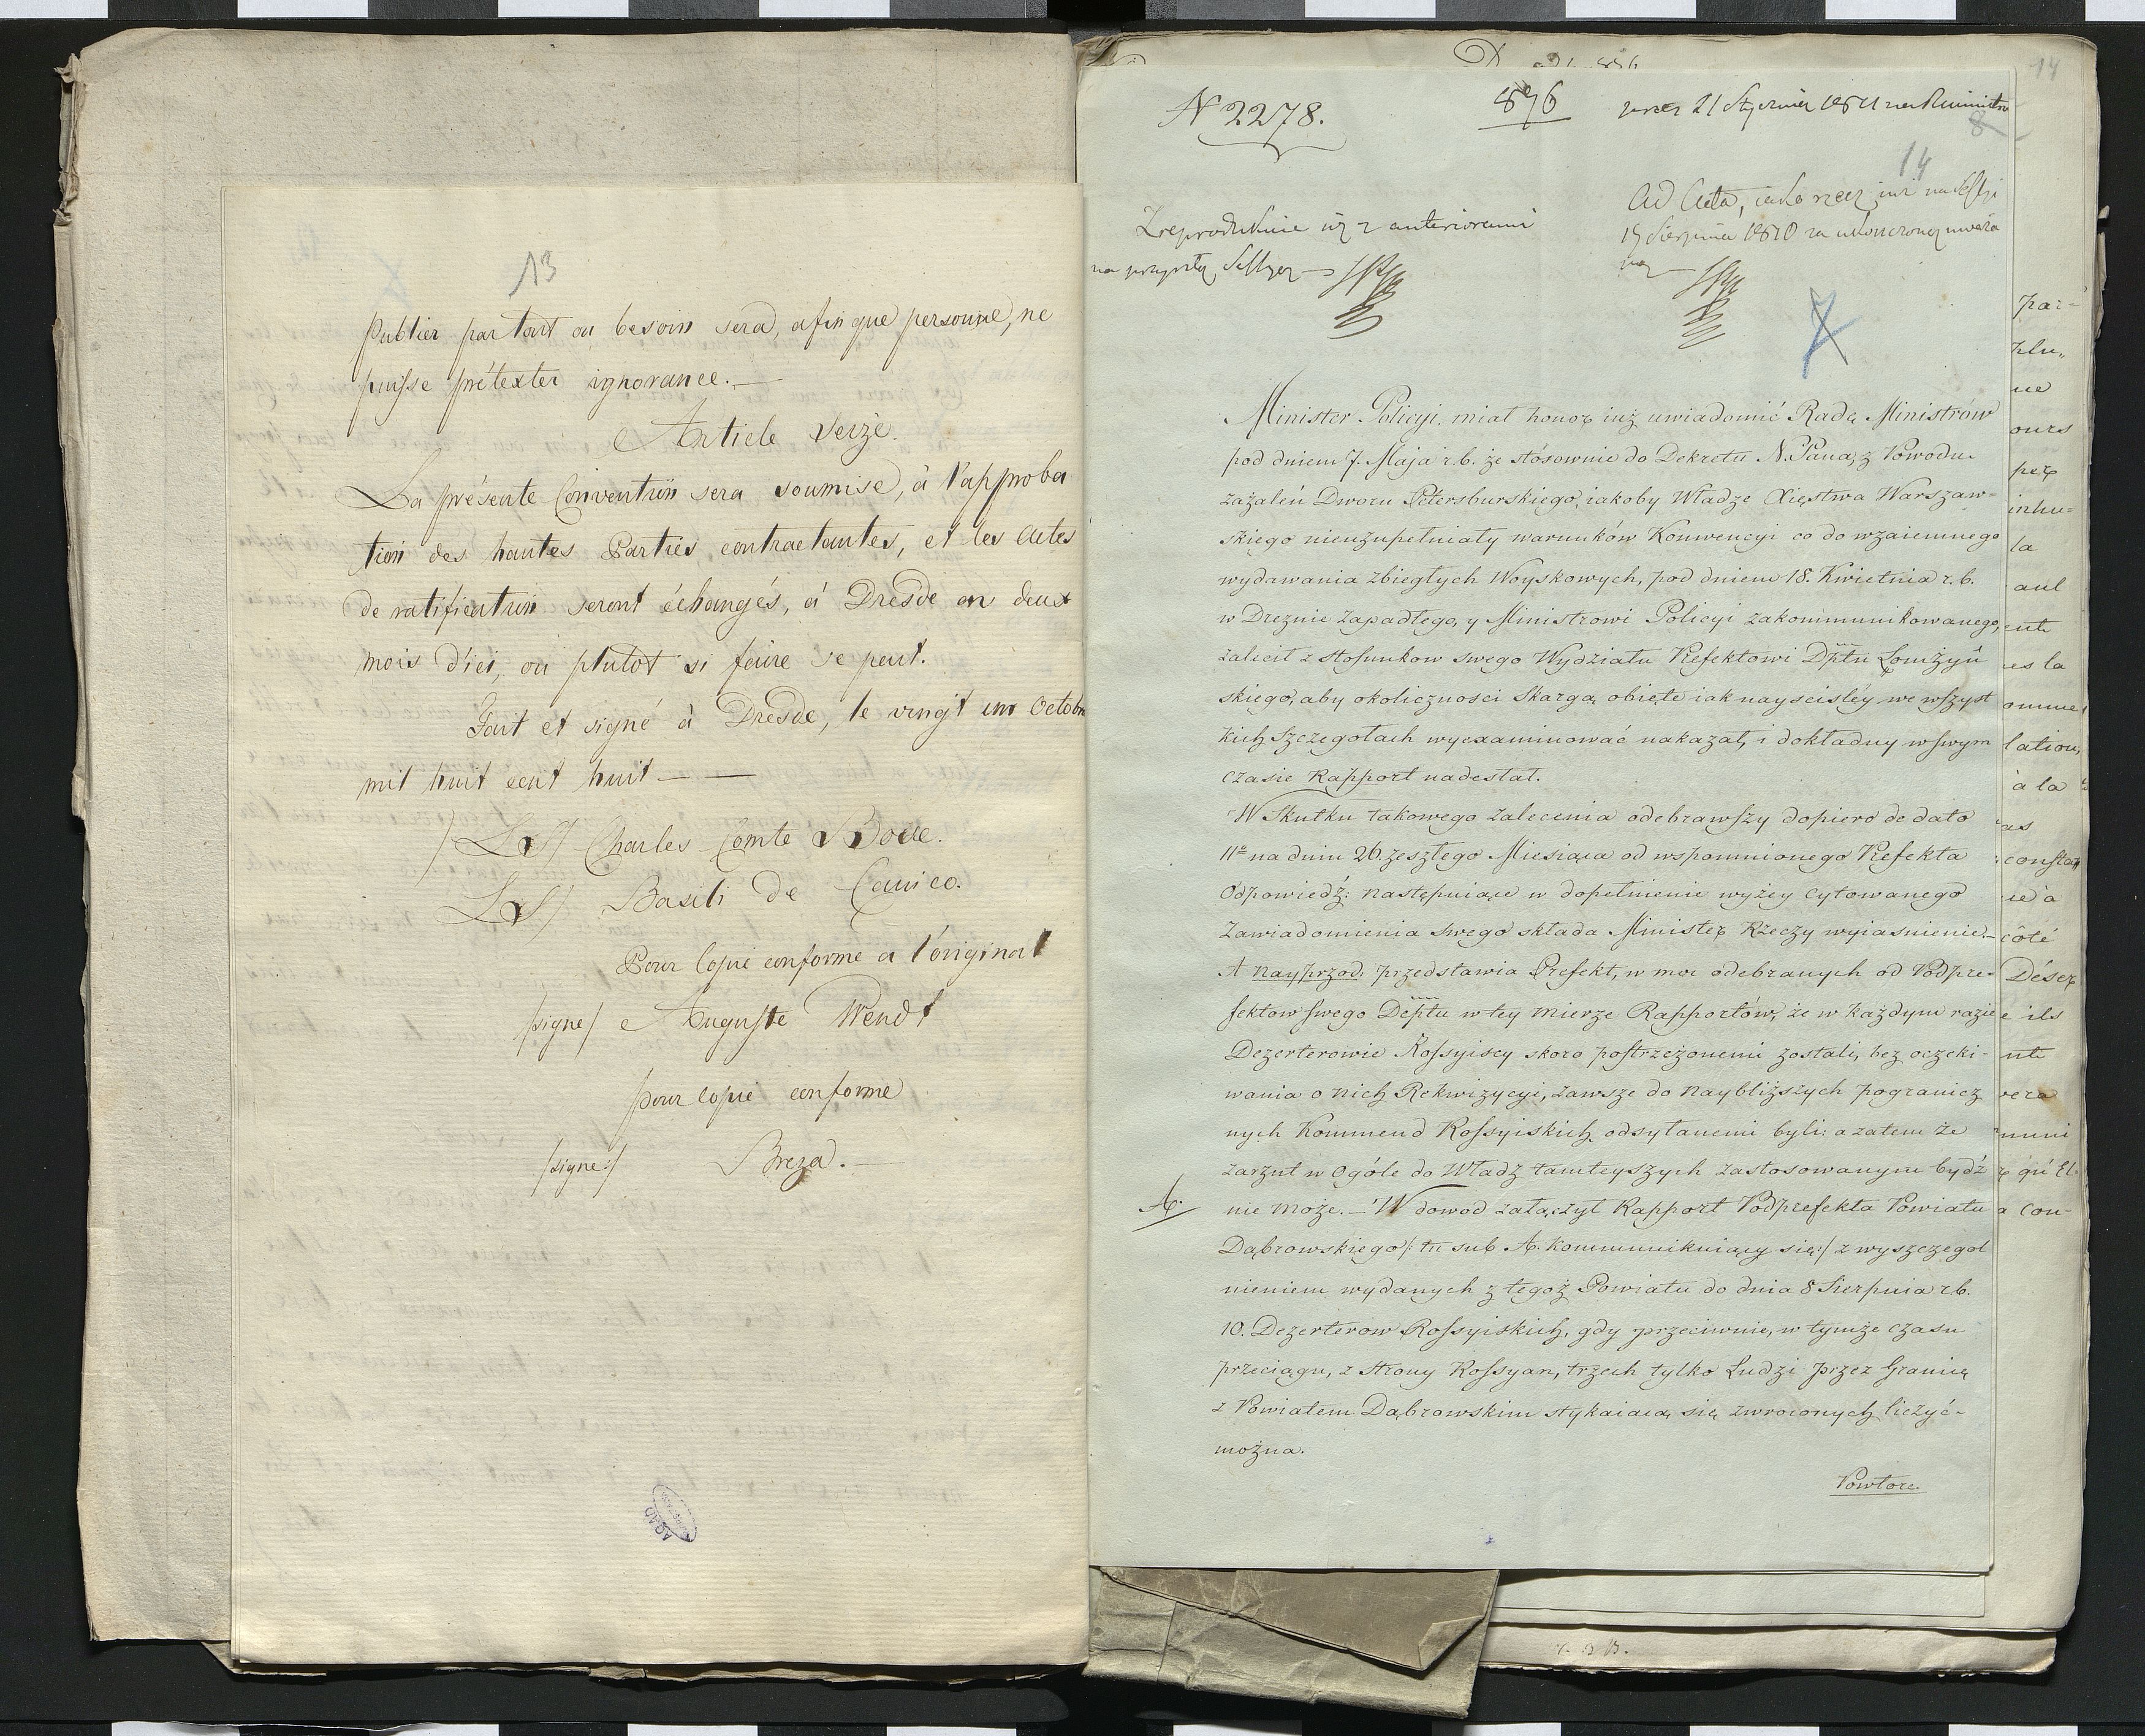 13
Publier par tout ou besoin sera, afin que personne, ne
puisse prétexter ignorance.—
Article Seize.
La présente Convention sera soumise, à l'approba
tion des hautes Parties contractantes, et les Actes
de ratification seront échangés, à Dresde en deux
mois d'ici, ou plutot si faire se peut.
Fait et signé à Dresde, le vingt un Octobre
mil huit cent huit — —
/LS/ Charles Comte Bose.
LS/ Basili de Canico.
Pour Copie conforme a l'original
/signe/ Auguste Wendt
pour copie conforme
/signe:/ Breza.—
14
N 2278.
876
prez 21 Stycznia 1811
8
14
Zreprodukuie się z anterioremi
na przyszłą Sessyą —
Ad Acta, iako rzecz iuż na Sessyi
19 Sierpnia 1810 za ukończoną uważa
na —
Minister Policyi, miał honor iuż uwiadomić Radę Ministrów
pod dniem 7. Maja r.b. że stósownie do Dekretu N. Pana, z Powodu
zażaleń Dworu Petersburskiego, iakoby Władze Xięstwa Warszaw-
skiego nieuzupełniały warunków Konwencyi co do wzaiemnego
wydawania zbiegłych Woyskowych, pod dniem 18. Kwietnia r.b.
w Dreznie zapadłego, y Ministrowi Policyi zakommunikowanego,
zalecił z stosunkow swego Wydziału Prefektowi Dptu Łomżyń
skiego, aby okoliczności Skargą obięte iak nayscisléy we wszyst
kich Szczegołach wyexaminować nakazał, i dokładny w swym
czasie Rapport nadesłał.
W Skutku takowego zalecenia odebrawszy dopiero de dato
11o na dniu 26. zeszłego Miesiąca od wspomnionego Prefekta
Odpowiedź: następuiące w dopełnienie wyżey cytowanego
Zawiadomienia swego składa Minister Rzeczy wyiasnienie.—
A nayprzod: przedstawia Prefekt, w moc odebranych od Podpre-
fektow swego Deptu w tey mierze Rapportów, że w każdym razie
Dezerterowie Rossyiscy skoro postrzeżonemi zostali, bez oczeki-
wania o nich Rekwizycyi, zawsze do naybliższych pogranicz
nych Kommend Rossyiskich odsyłanemi byli: a zatem że
zarzut w Ogóle do Władz tamteyszych zastosowanym bydź
A.
nie może.— W dowod załączył Rapport Podprefekta Powiatu
Dąbrowskiego /: tu sub A. kommunikuiący się:/ z wyszczegol
nieniem wydanych z tegoż Powiatu do dnia 8 Sierpnia r.b.
10. Dezerterow Rossyiskich, gdy przeciwnie, w tymże czasu
przeciągu, z Strony Rossyan, trzech tylko Ludzi przez Granicę
z Powiatem Dąbrowskim stykaiącą się zwroconych liczyć
można.
Powtore.
par-
plu„
ne
ours
la
ente
es la
omme
lation,
à la
as
côté
Déser
e ils
nte
vera
a con-